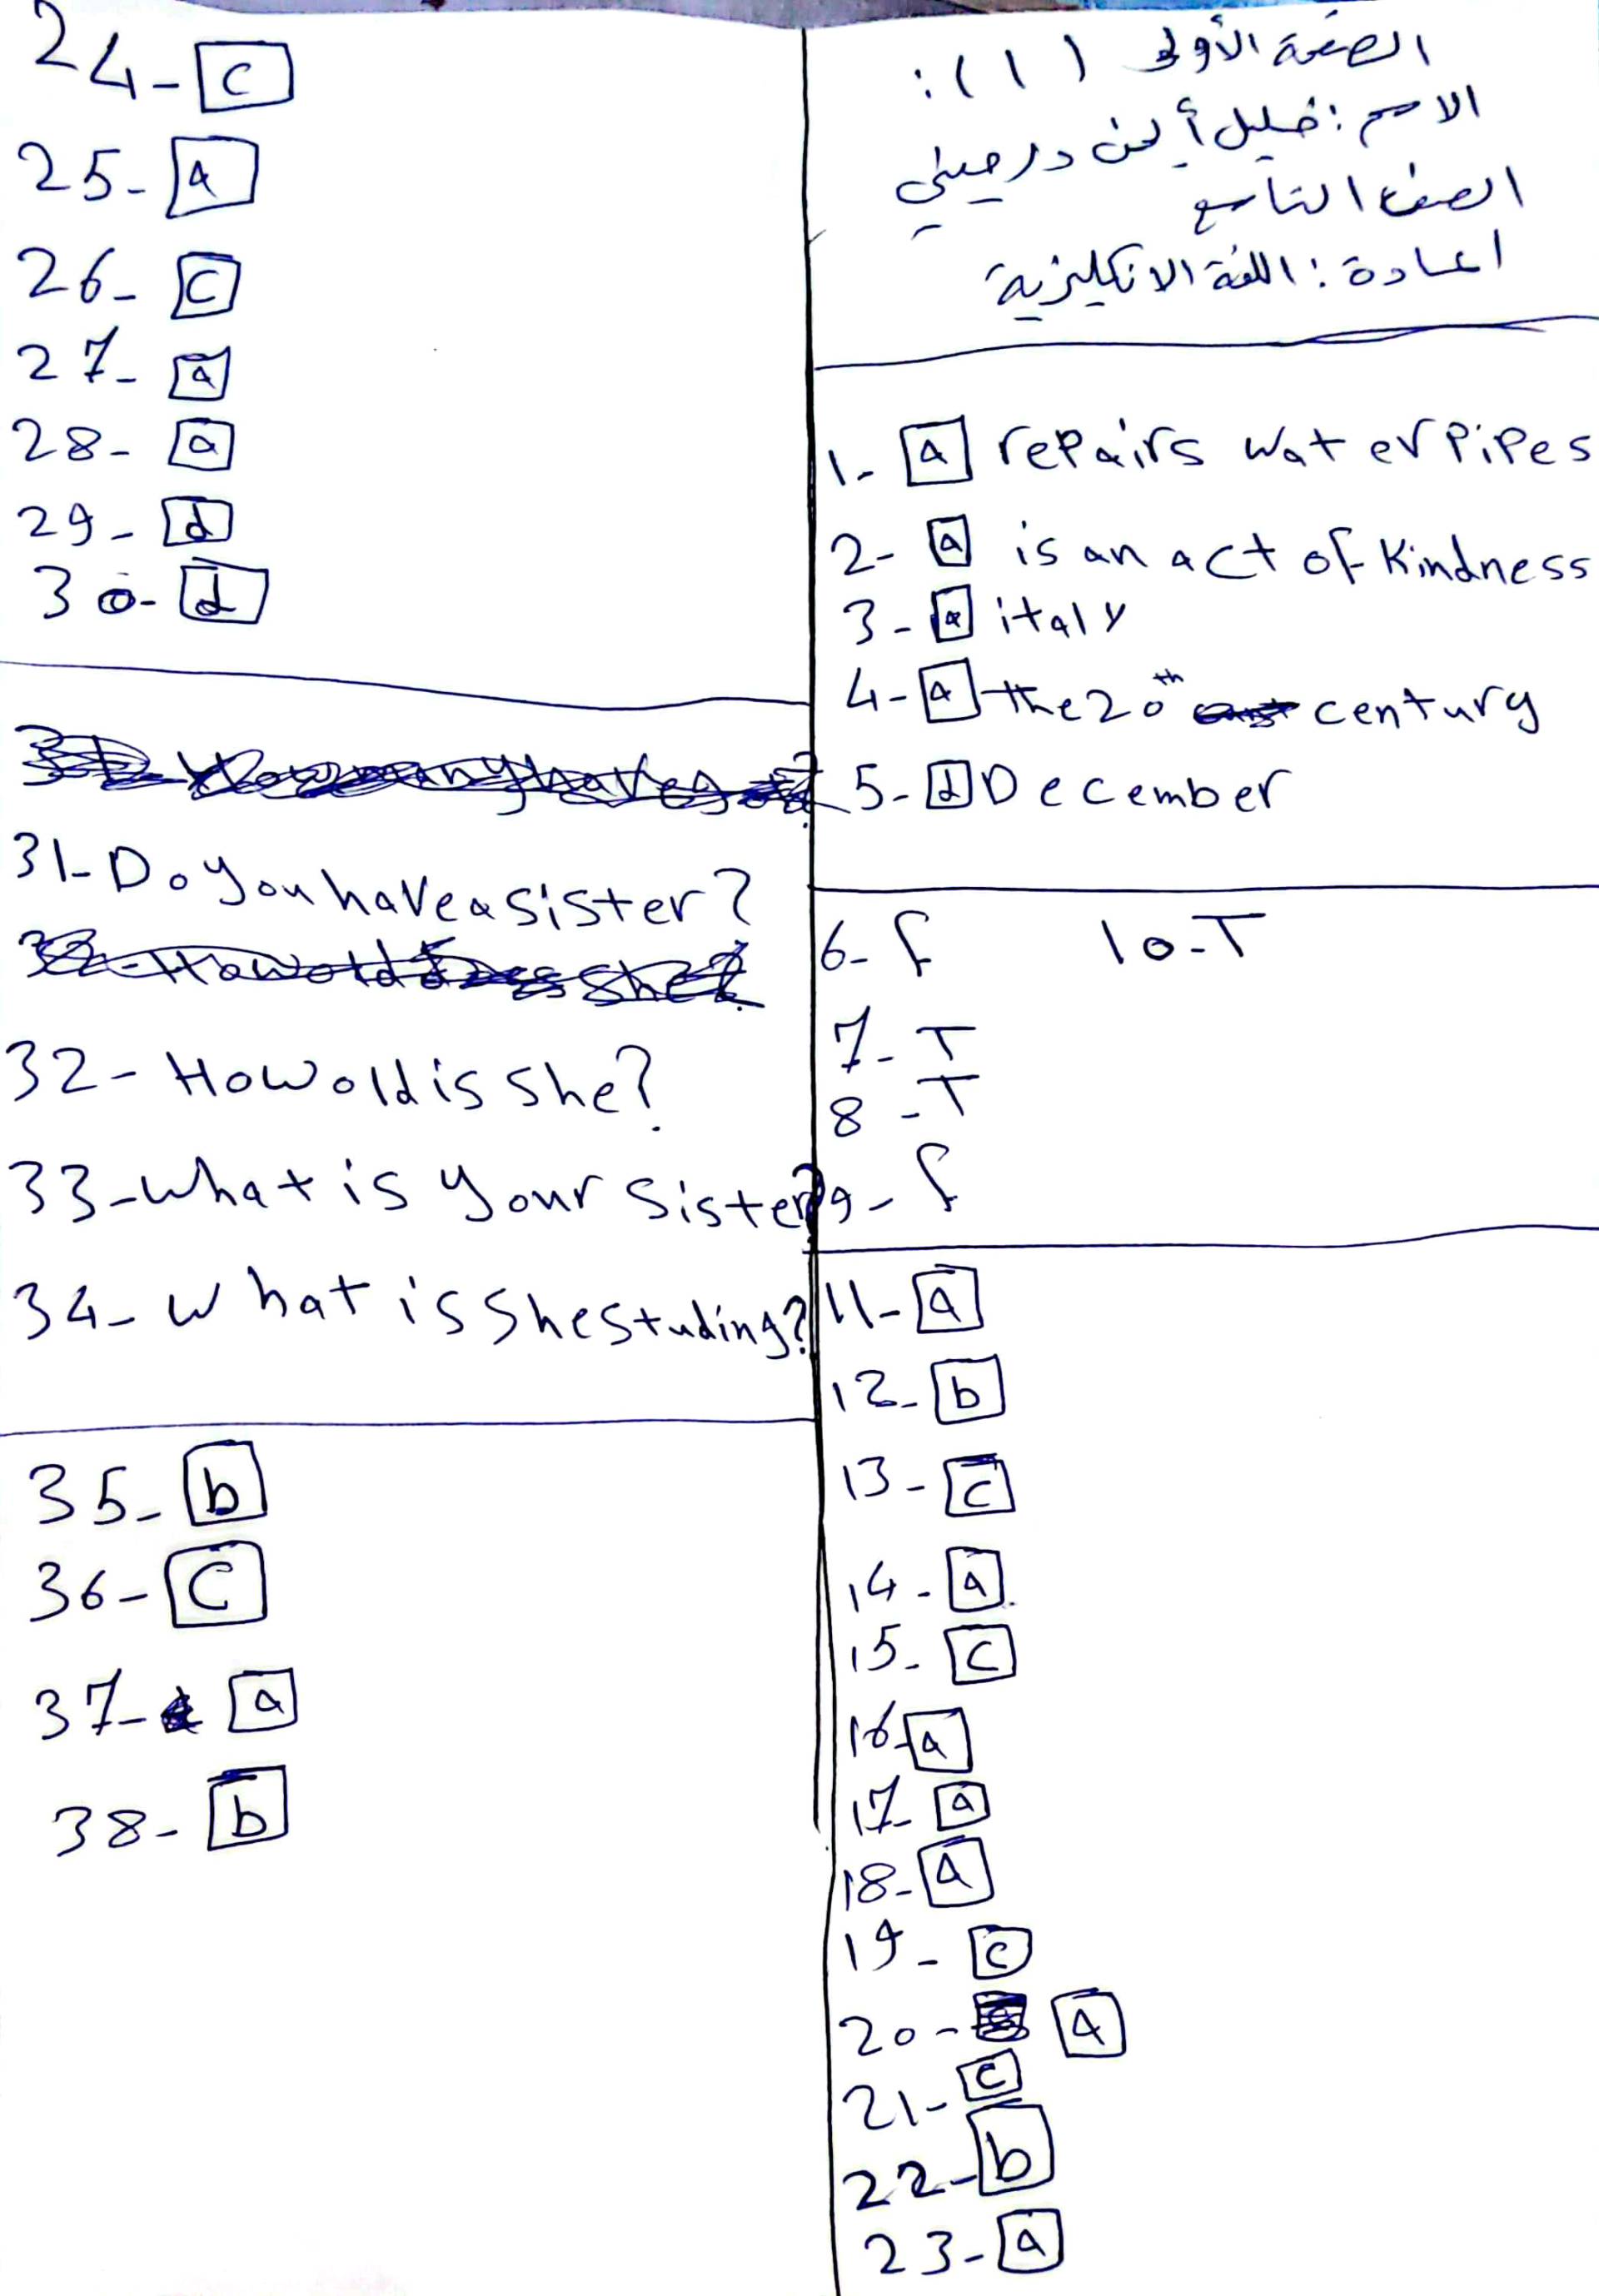 الصفحة الأولى (١):
الاسم: خليل أيمن
الصف التاسع
اعادة: اللغة الانكليزية
1- a repairs water pipes
2- a is an act of kindness
3- a italy
4- a the 20th century
5- d December
6- f
10-T
7- T
8-T
9- f
11- a
12- b
13- c
14- a
15- c
16- a
17- a
18- a
19- c
20- a
21- c
22- b
23- a
24- c
25- a
26- c
27- a
28- a
29- d
30- d
31- Do you have a sister?
32- How old is she?
33- what is your sister?
34- what is she studing?
35- b
36- c
37- a
38- b